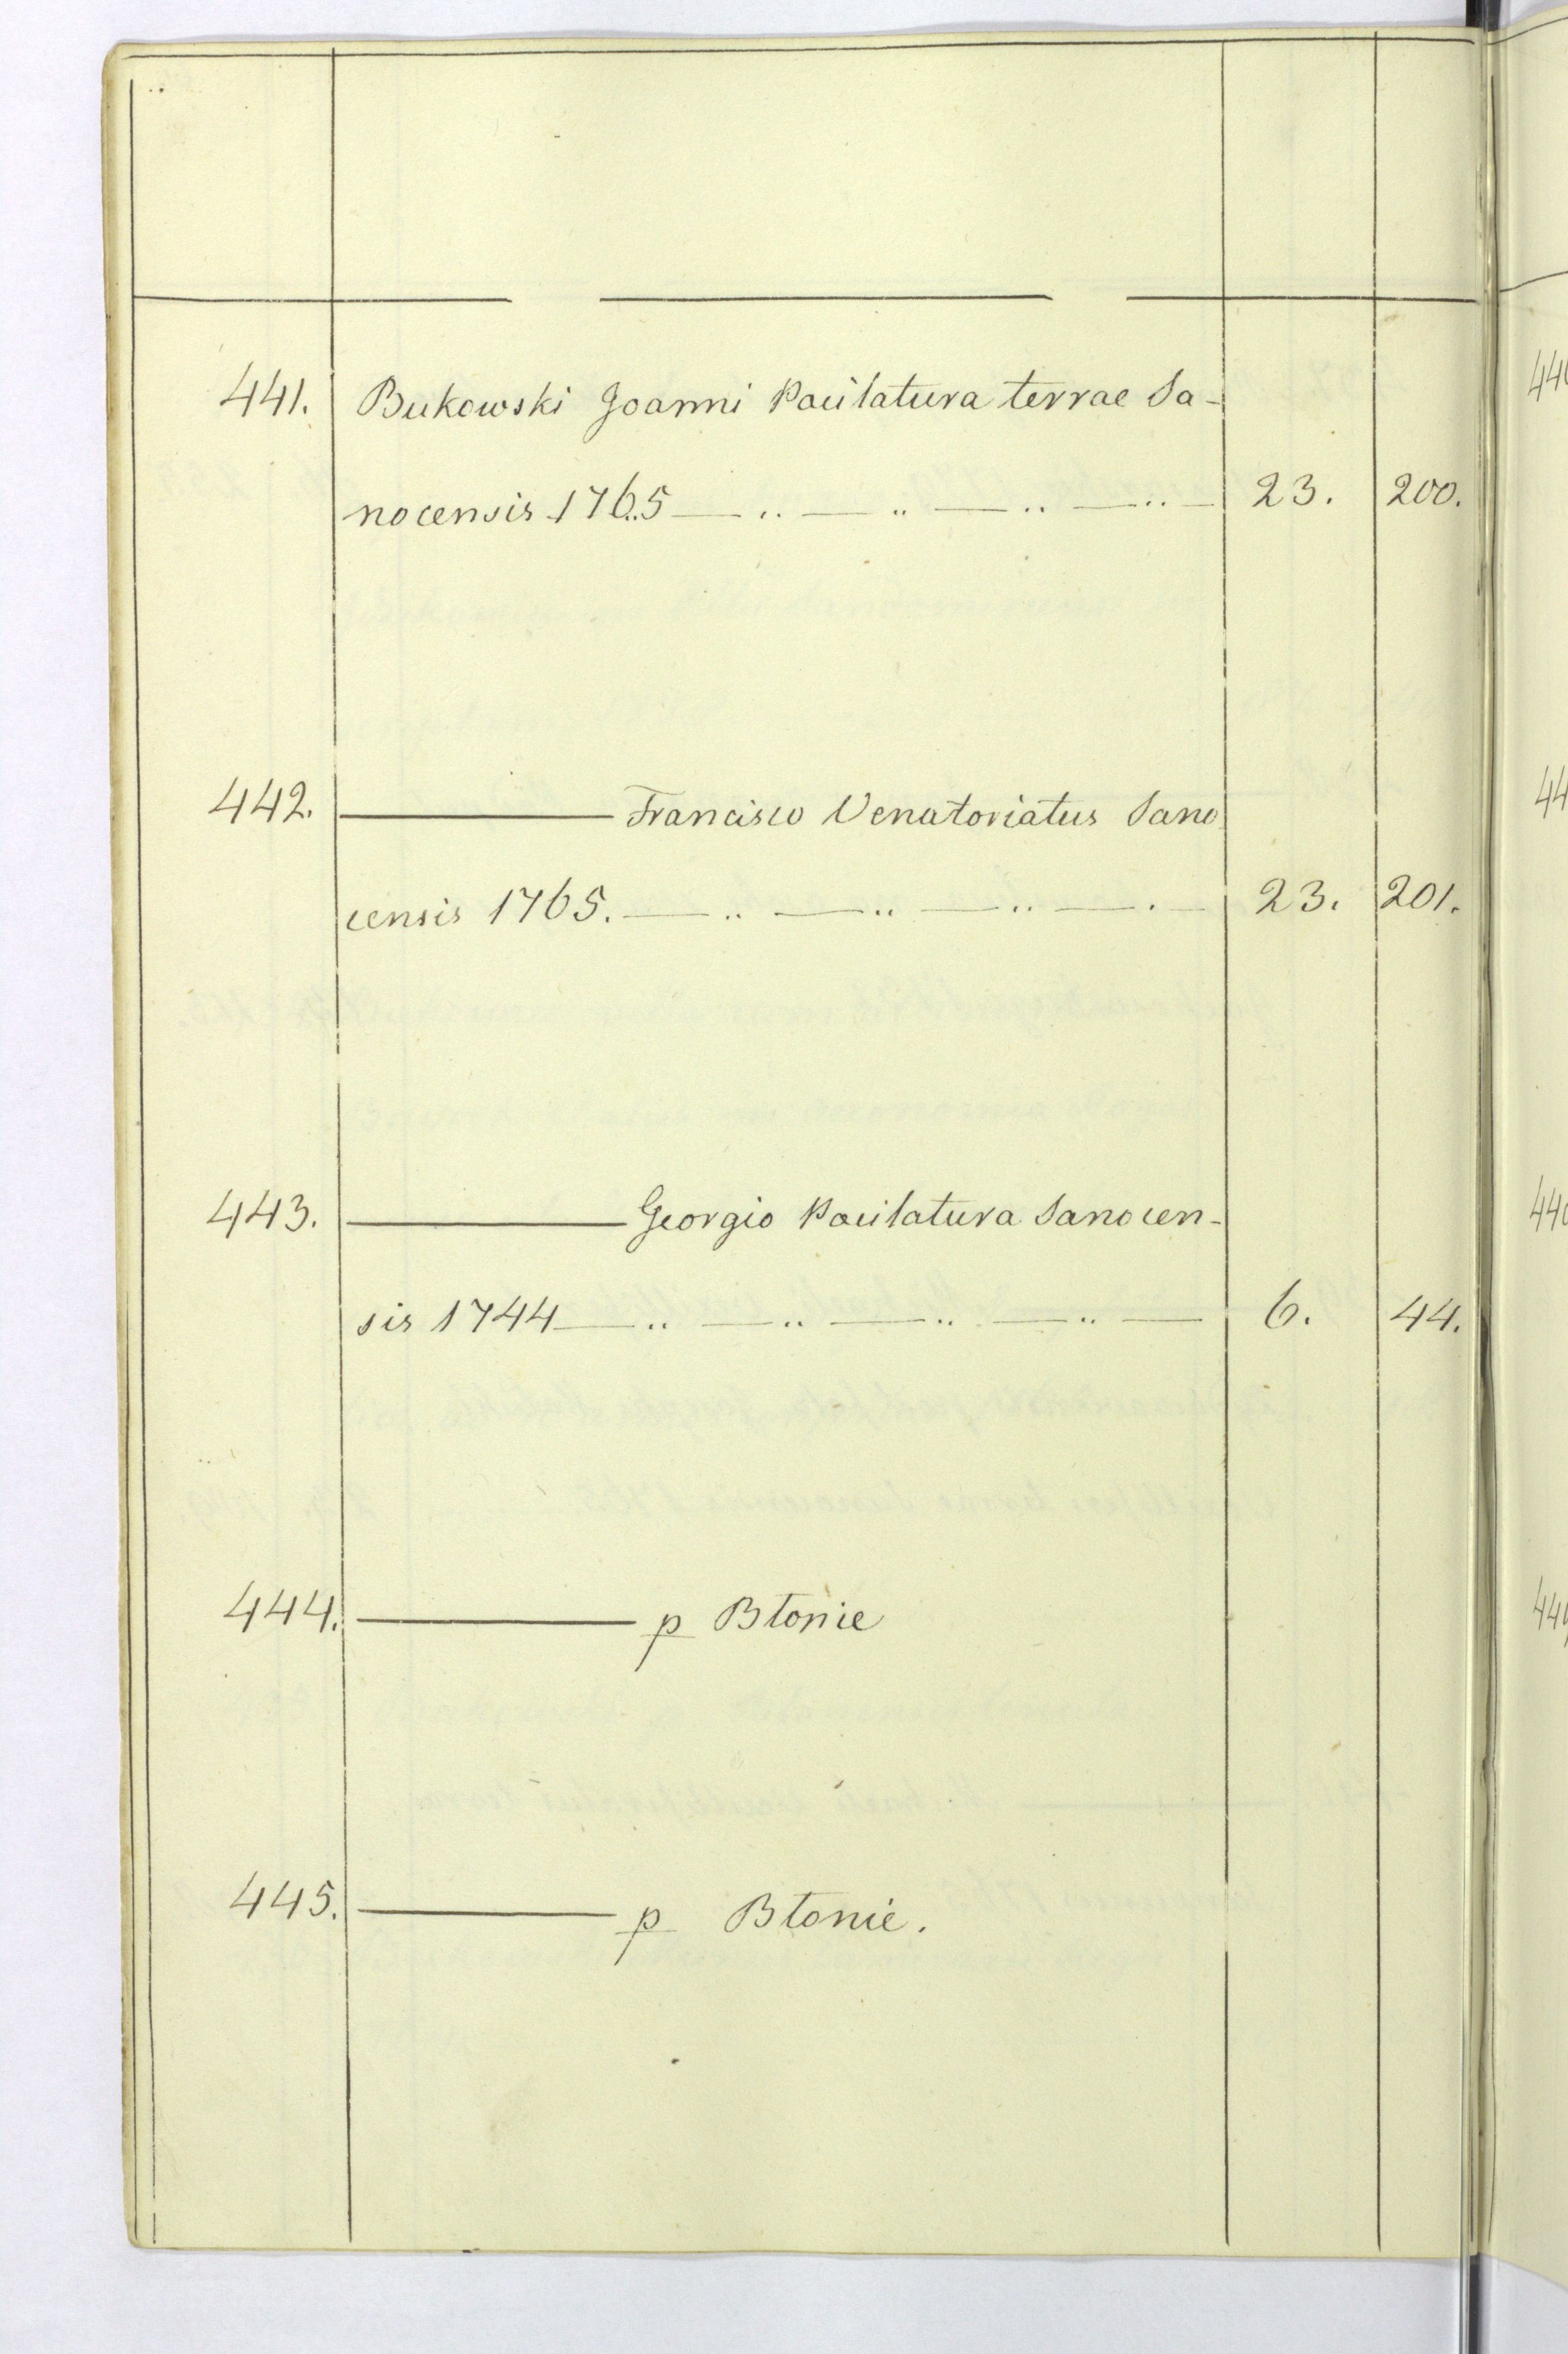 441. Bukowski Joanni Pocilatura terrae Sa-
nocensis 1765 — .. — .. — .. — .. — 23. 200.
442. ——— Francisco Venatoriatus Sano
censis 1765. — .. — .. — .. — . — 23. 201.
443. ——— Georgio Pocilatura Sanocen-
sis 1744 — .. — .. — .. — .. — 6. 44.
444. ——— p Błonie
445. ——— p Błonie.